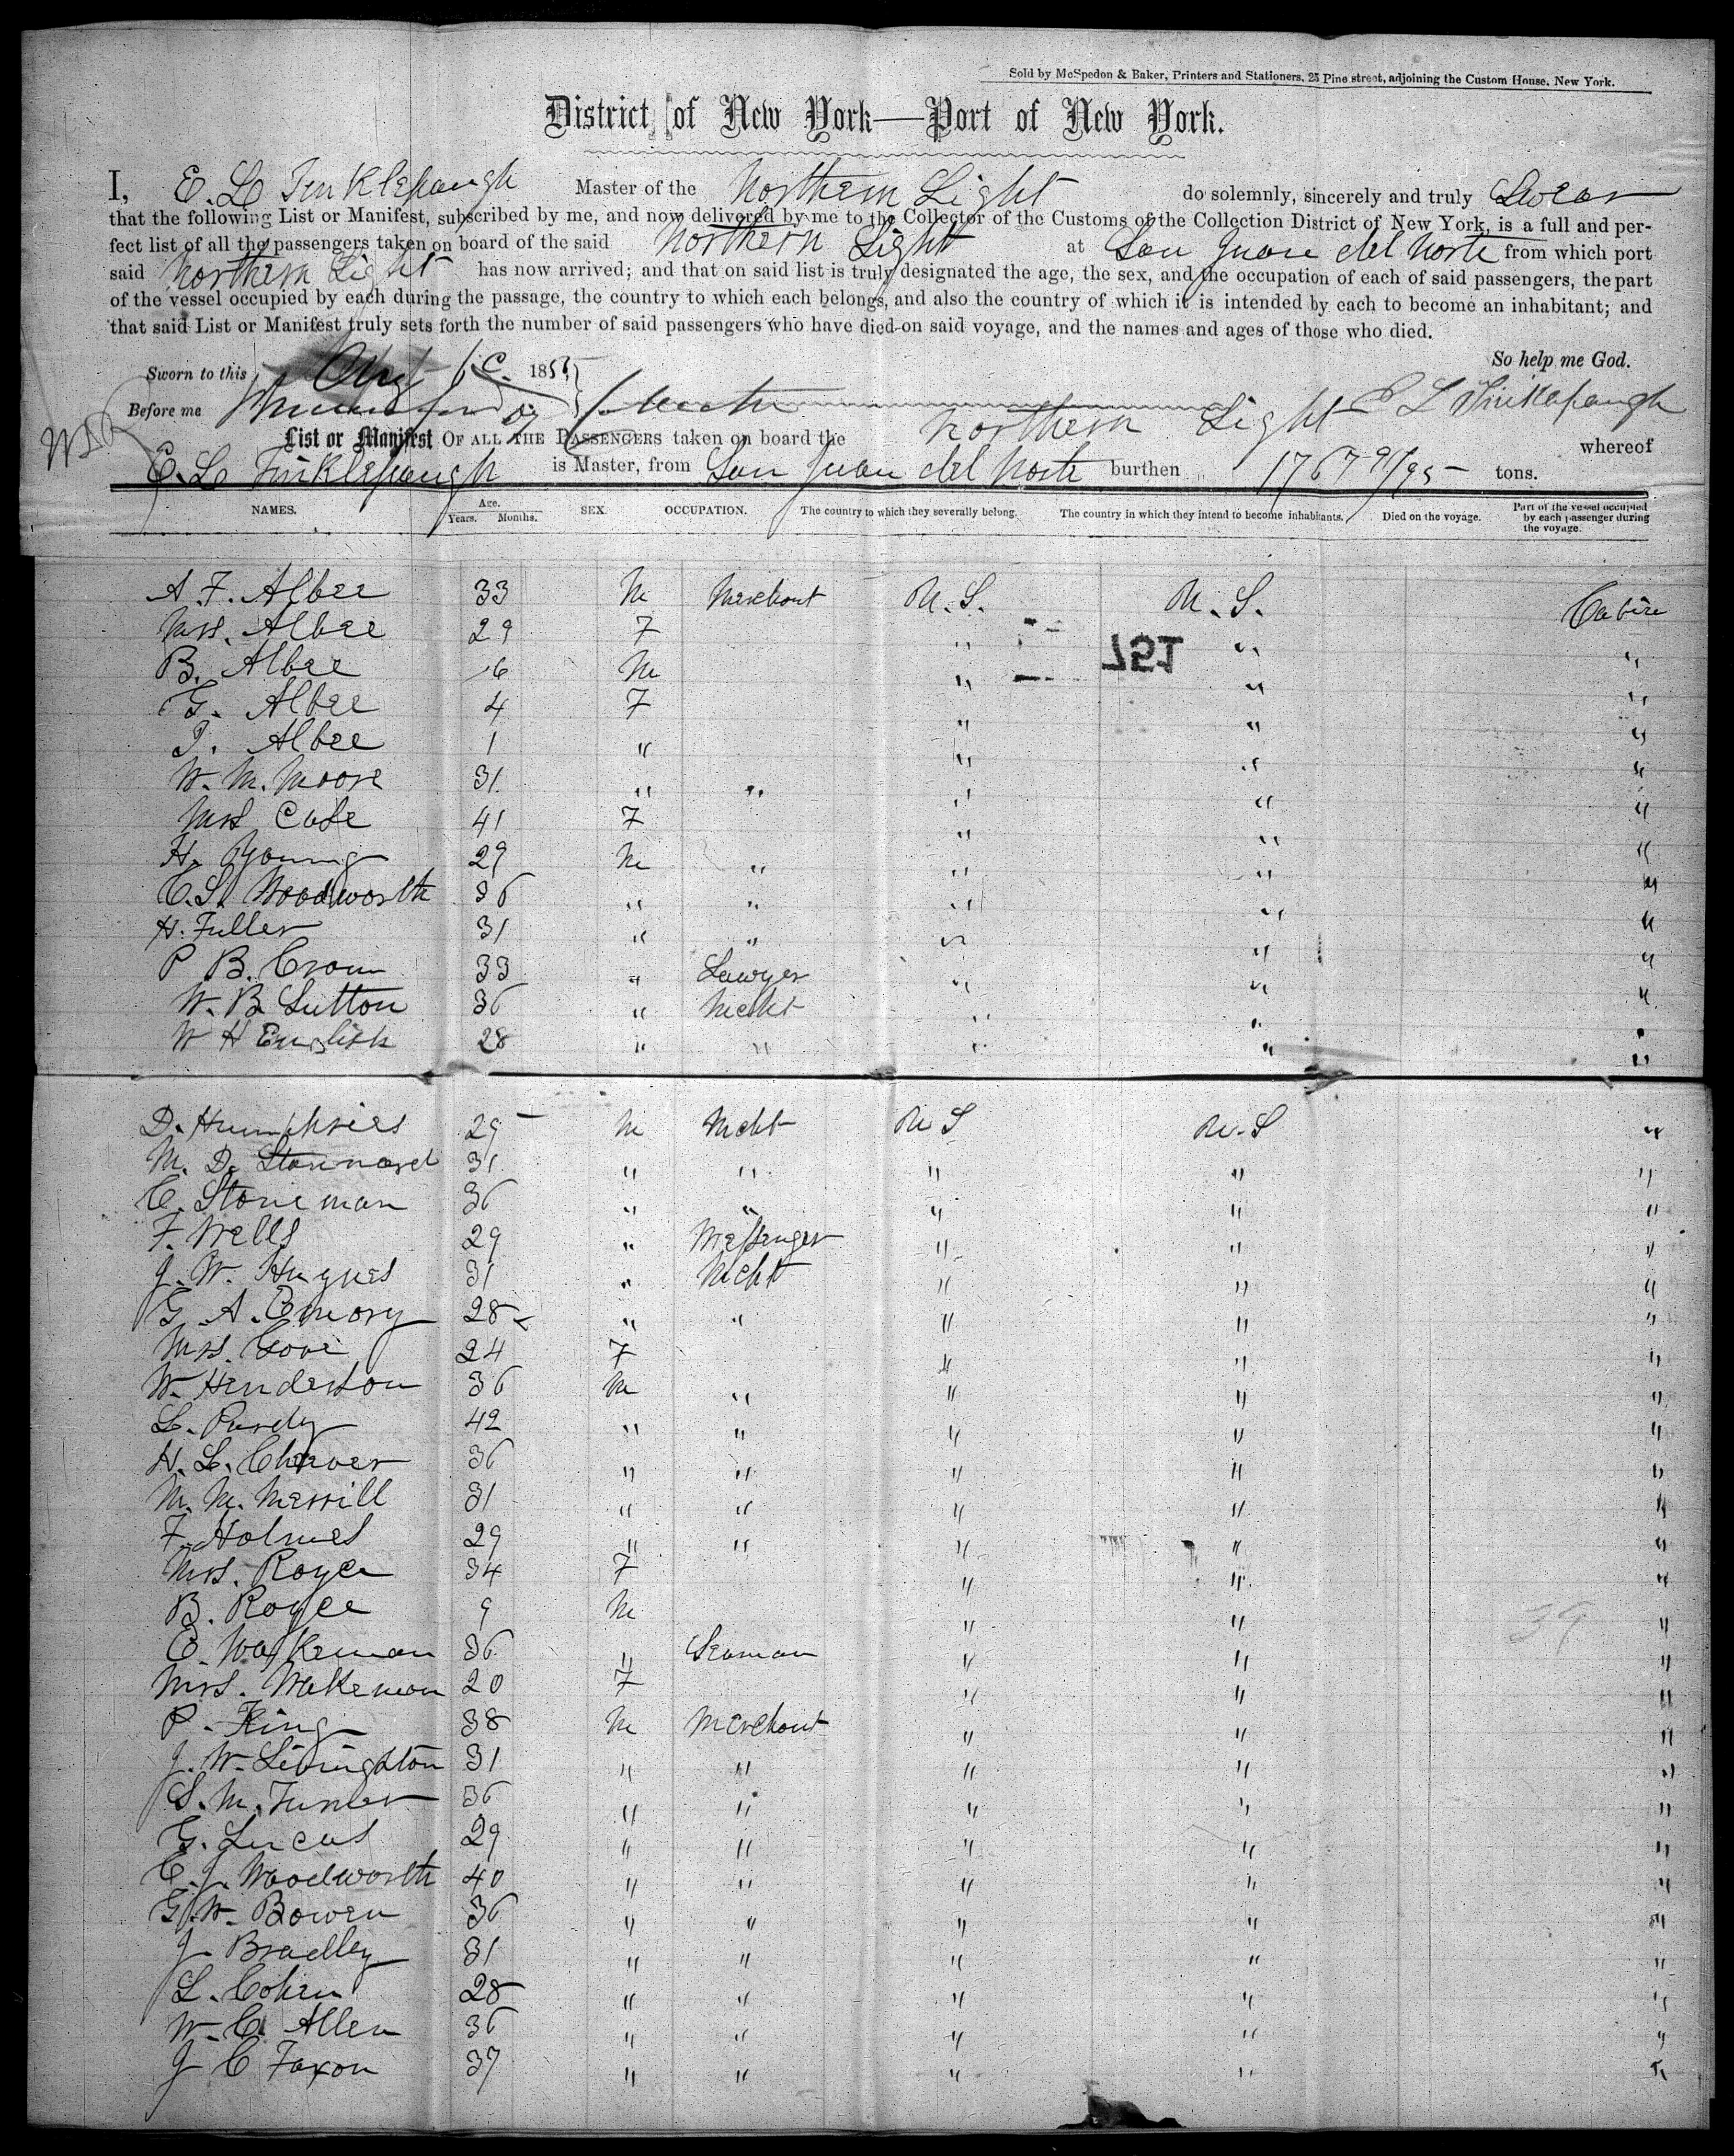 Sold by McSpedon & Baker, Printers and Stationers, 25 Pine street, adjoining the Custom House, New York.
District of New York—Port of New York.
I, E. L. Tinklepaugh Master of the Northern Light do solemnly, sincerely and truly Swear
that the following List or Manifest, subscribed by me, and now delivered by me to the Collector of the Customs of the Collection District of New York, is a full and per-
fect list of all the passengers taken on board of the said Northern Light at San Juan del Norte from which port
said Northern Light has now arrived; and that on said list is truly designated the age, the sex, and the occupation of each of said passengers, the part
of the vessel occupied by each during the passage, the country to which each belongs, and also the country of which it is intended by each to become an inhabitant; and
that said List or Manifest truly sets forth the number of said passengers who have died on said voyage, and the names and ages of those who died.
So help me God.
Sworn to this Aug 185
Before me E L Tinklepaugh
List or Manifest OF ALL THE PASSENGERS taken on board the Northern Light whereof
E. L. Tinklepaugh is Master, from San Juan del Norte burthen 1767 91/95 tons.
NAMES. Age. Years. Months. SEX. OCCUPATION. The country to which they severally belong. The country in which they intend to become inhabitants. Died on the voyage. Part of the vessel occupied by each passenger during the voyage.
A. F. Albee 33 M Merchant U.S. U.S. Cabin
Mrs. Albee 29 F " " "
751
B. Albee 6 M " " "
G. Albee 4 F " " "
J. Albee 1 " " " "
W. M. Moore 31 " " " " "
Mrs Case 41 F " " "
H. Young 29 M " " " "
C. S. Woodworth 36 " " " " "
H. Fuller 31 " " " " "
P B. Crain 33 " Lawyer " " "
W. B. Sutton 36 " Mecht " " "
W H English 28 " " " " "
D. Humphries 29 M Mcht U S U.S "
M. D. Stannard 31 " " " " "
C. Stoneman 36 " " " " "
F. Wells 29 " Messenger " " "
J. W. Hughes 31 " Mcht " " "
G. A. Emory 28 " " " " "
Mrs. Gove 24 F " " "
W. Henderson 36 M " " " "
L. Purdy 42 " " " " "
H. L. Cheever 36 " " " " "
M. M. Merrill 31 " " " " "
F. Holmes 29 " " " " "
Mrs. Royce 34 F " " "
B. Royce 9 M " " "
39
E. Wakeman 36 " Seaman " " "
Mrs. Wakeman 20 F " " "
P. King 38 M Merchant " " "
J. W. Livingston 31 " " " " "
S. M. Turner 36 " " " " "
G. Lucas 29 " " " " "
C. J. Woodworth 40 " " " " "
G. W. Bowen 36 " " " " "
J. Bradley 31 " " " " "
L. Cohen 28 " " " " "
W. C. Allen 36 " " " " "
J C Faxon 37 " " " " "